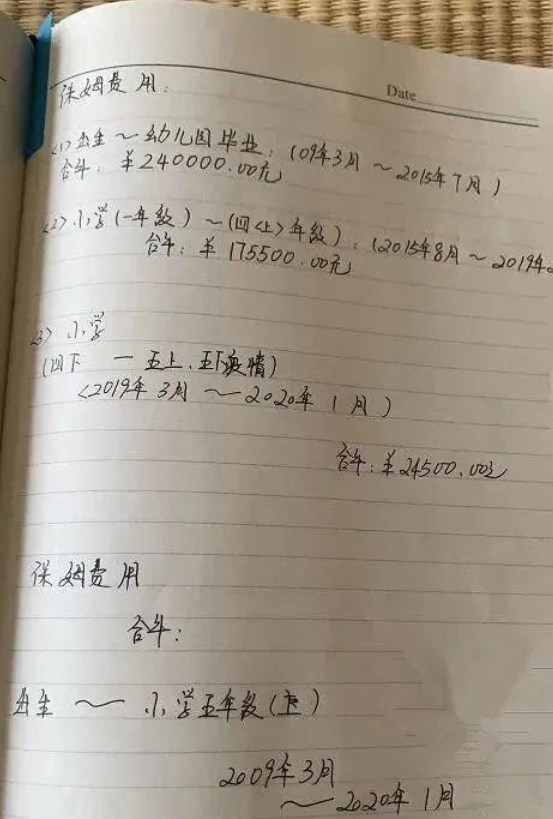 Date
保姆费用:
<1> 出生 ~ 幼儿园毕业: (09年3月 ~ 2015年7月)
合计: ¥240000.00元
<2> 小学(一年级) ~ (四<上>年级): (2015年8月 ~ 2019年
合计: ¥175500.00元
<3> 小学
(四下 — 五上、五下疫情)
<2019年3月 ~ 2020年1月)
合计: ¥24500.00元
保姆费用
合计:
出生 ~ 小学五年级(上)
2009年3月
~ 2020年1月